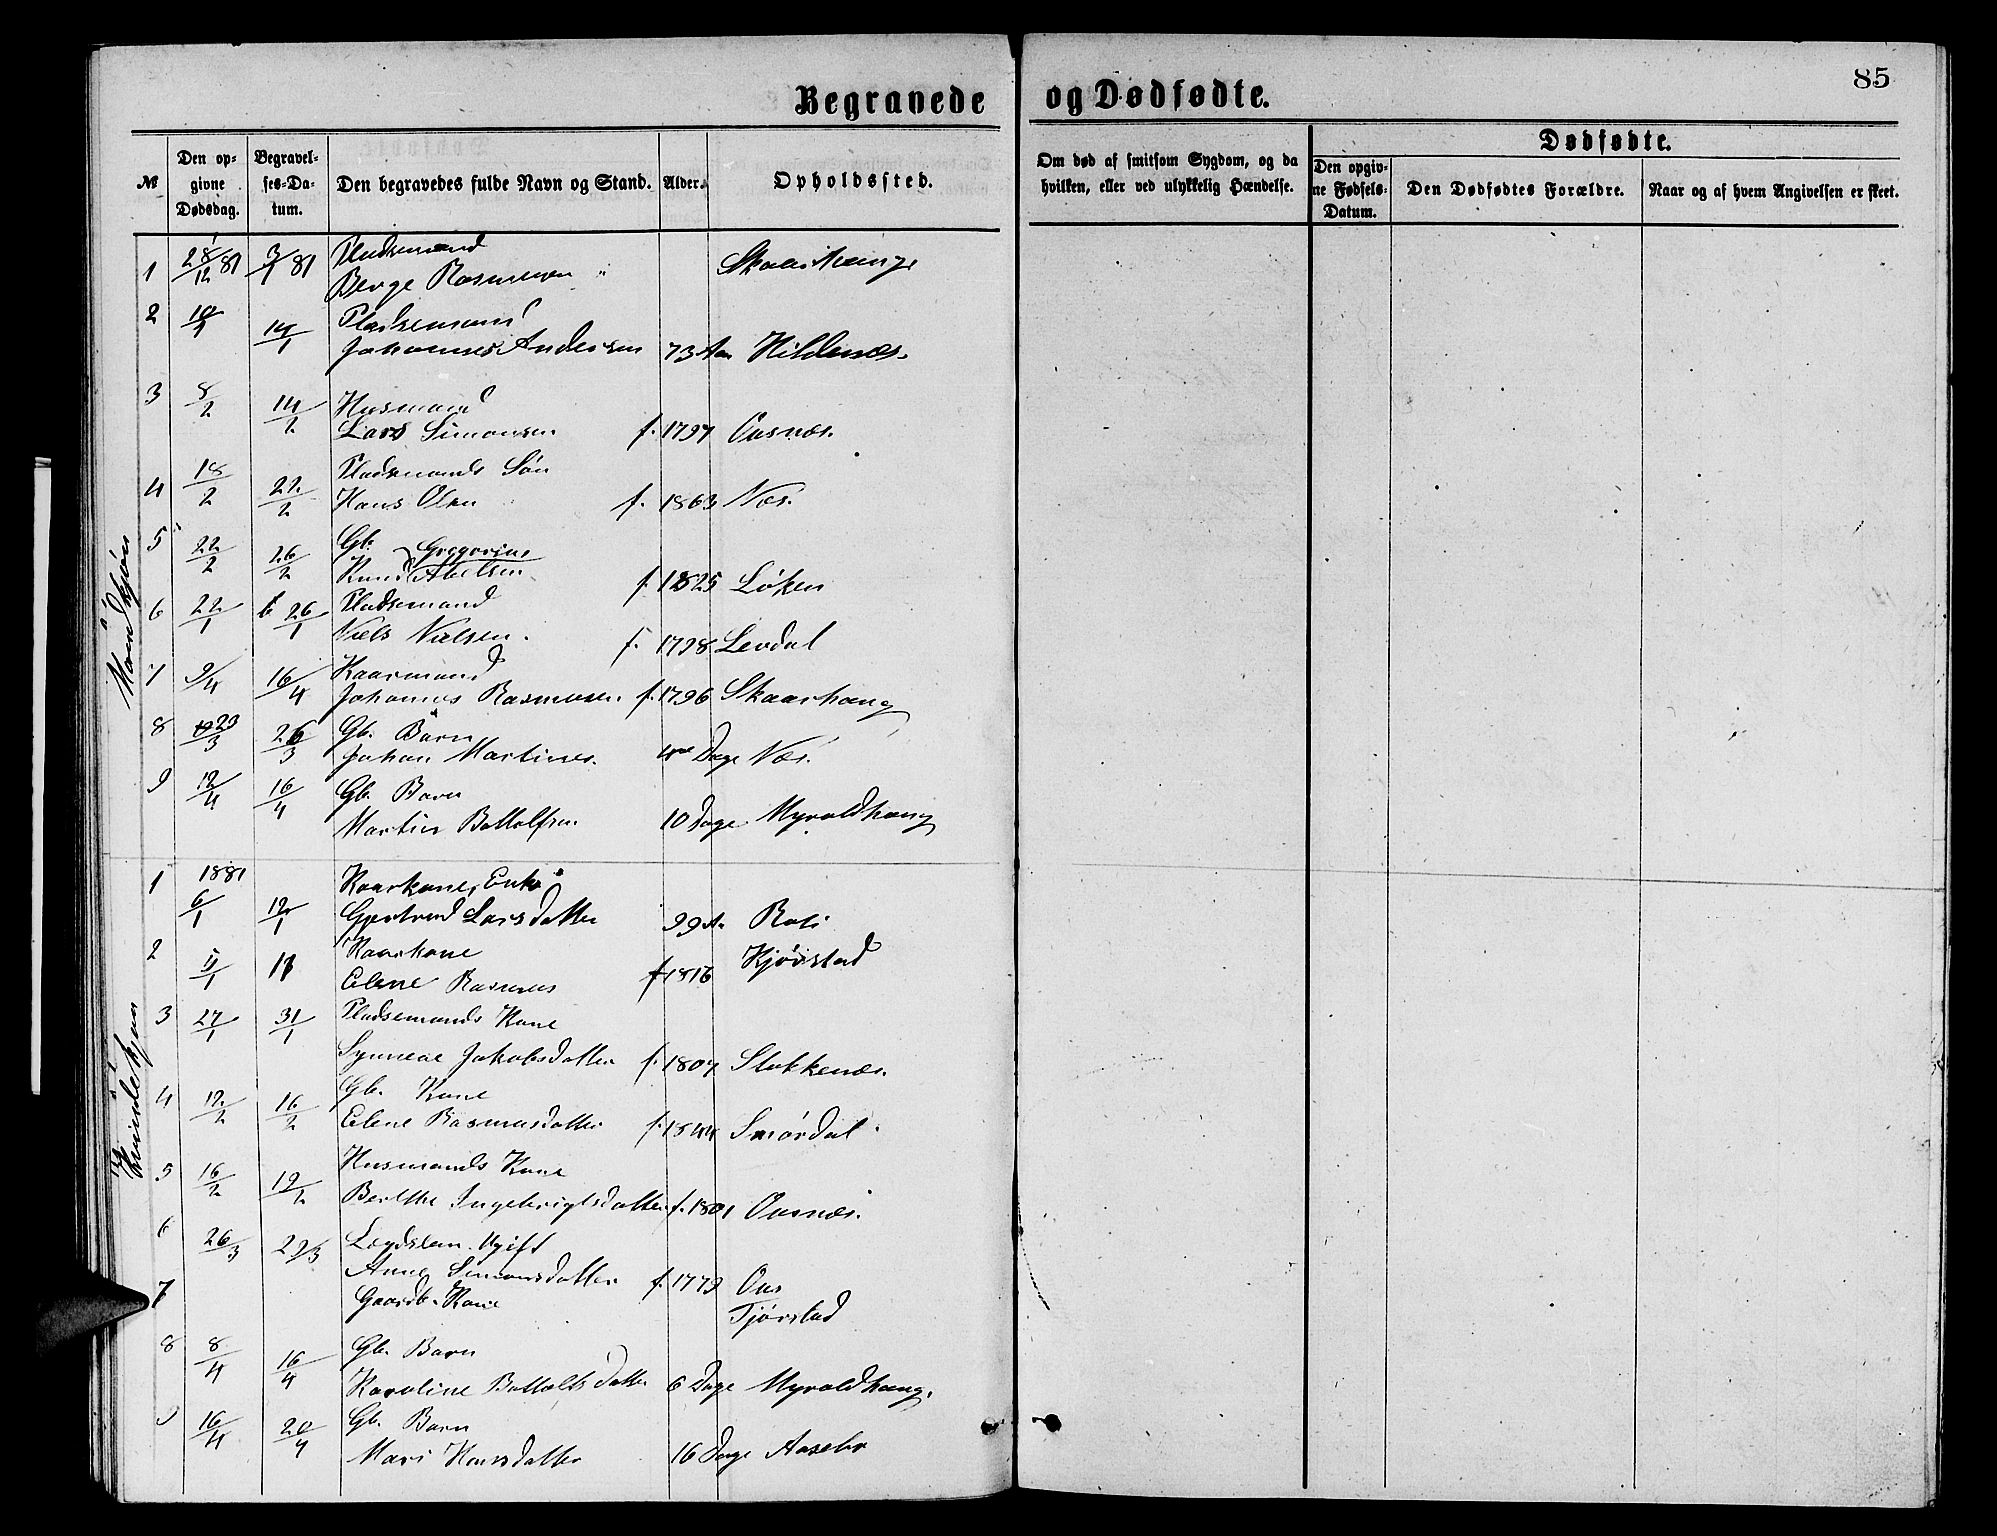 85
Begravede og Dødfødte.
№
Den opgivne Dødsdag.
Begravelses-Datum.
Den begravedes fulde Navn og Stand.
Alder.
Opholdssted.
Om død af smitsom Sygdom, og da hvilken, eller ved ulykkelig Hændelse.
Dødfødte.
Den opgivne Fødsels-Datum.
Den Dødfødtes Forældre.
Naar og af hvem Angivelsen er skeet.
Mandkjøn
1 28/12 81 3/1 81 Pladsemand
Berge Rasmusen
2 10/1 14/1 Pladsemand
Johannes Andersen 73 Aar Hildenæs.
3 8/2 14/2 Husmand
Lars Simonsen f. 1797 Ousnæs.
4 18/2 22/2 Pladsmands Søn
Hans Olsen f. 1863 Næs.
5 22/2 26/2 Gb. Greggorius
Knud Abelsen f. 1825 Løken
6 22/1 26/1 Pladsemand
Niels Nielsen. f. 1798 Levdal
7 9/4 16/4 Kaarmand
Johannes Rasmusen f. 1796 Skaarhaug
8 23/3 26/3 Gb. Barn
Johan Martines. Dage Næs.
9 12/4 16/4 Gb. Barn
Martin Bottolfsen 10 Dage Myroldhaug
Kvindekjøn
1 1881
6/1 12/1 Kaarkone, Enke
Gjertrud Larsdatter 99 A. Roti
2 11/1 Kaarkone
Elene Rasmus f 1816 Kjørstad
3 27/1 31/1 Pladsemands Kone
Synneve Jakobsdatter f. 1807 Stokkenæs.
4 12/2 16/2 Gb. Kone
Elene Rasmusdatter f. 1844 Smørdal.
5 16/2 19/2 Husmands Kone
Berthe Ingebrigtsdatter f. 1801 Ousnæs.
6 26/3 29/3 Legdslem. Ugift
Anne Simonsdatter f. 1779 Ous
7 Gaardb. Kone Tjørstad
8 8/4 16/4 Gb. Barn
Karoline Bottolfsdatter 6 Dage Myroldhaug.
9 16/4 20/4 Gb. Barn
Mari Hansdatter 16 Dage Aasebø